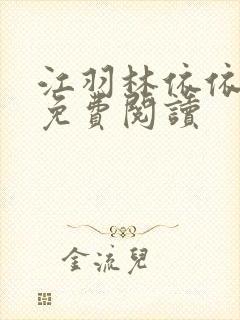 江羽林依依
免費閱讀
金流兒